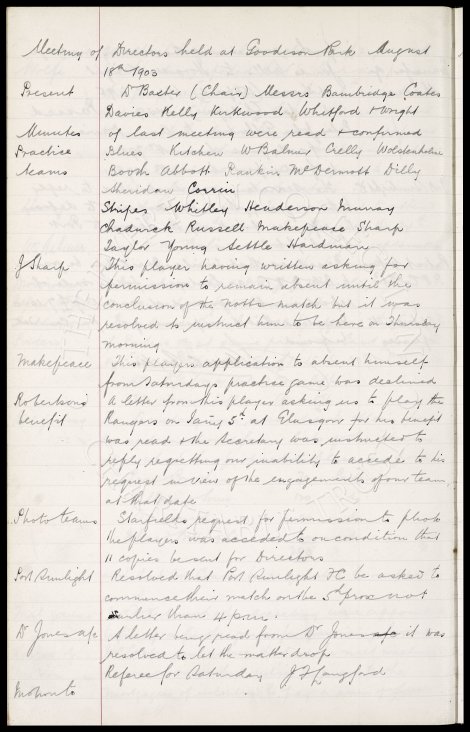 Meeting of Directors held at Goodison Park August
18th 1903
Present Dr Baxter (Chair) Messrs Bainbridge Coates
Davies Kelly Kirkwood Whitford & Wright
Minutes of last meeting were read & confirmed
Practice Blues Kitchen W Balmer Crelly Wolstenholme
teams Booth Abbott Rankin McDermott Dilly
Sheridan Corrin
Stripes Whitley Henderson Murray
Chadwick Russell Makepeace Sharp
Taylor Young Settle Hardman
J Sharp This player having written asking for
permission to remain absent until the
conclusion of the Notts match but it was
resolved to instruct him to be here on Thursday
morning
Makepeace This players application to absent himself
from Saturdays practice game was declined
Robertson's A letter from this player asking us to play the
benefit Rangers on Jany 5th at Glasgow for his benefit
was read & the Secretary was instructed to
reply regretting our inability to accede to his
request in view of the engagements of our team
at that date
Photo teams Starfields request for permission to photo
the players was acceded to on condition that
11 copies be sent for Directors
Port Sunlight Resolved that Port Sunlight FC be asked to
commence their match on the 5th prox not
earlier than 4 p.m.
Dr Jones a/c A letter being read from Dr Jones it was
resolved to let the matter drop
Referee for Saturday J T Langford